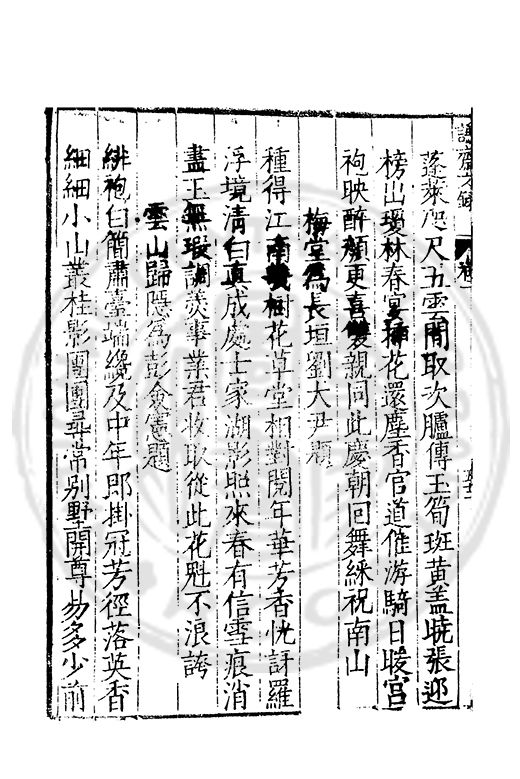 蓬萊咫尺五雲間取次臚傳玉筍班黃盖曉張迎
榜出瓊林春宴插花還塵香官道催游騎日暖宫
袍映醉顏更喜雙親同此慶朝囘舞綵祝南山
梅堂爲長垣劉大尹題
種得江南樹花草堂相對閱年華芳香恍訝羅
浮境清白真成處士家湖影照來春有信雪痕消
盡玉無瑕調羹事業君收取從此花魁不浪誇
雲山歸隱爲彭僉憲題
緋袍白簡肅臺端纔及中年即掛冠芳徑落英香
細細小山叢桂影團團尋常别墅開尊易多少前